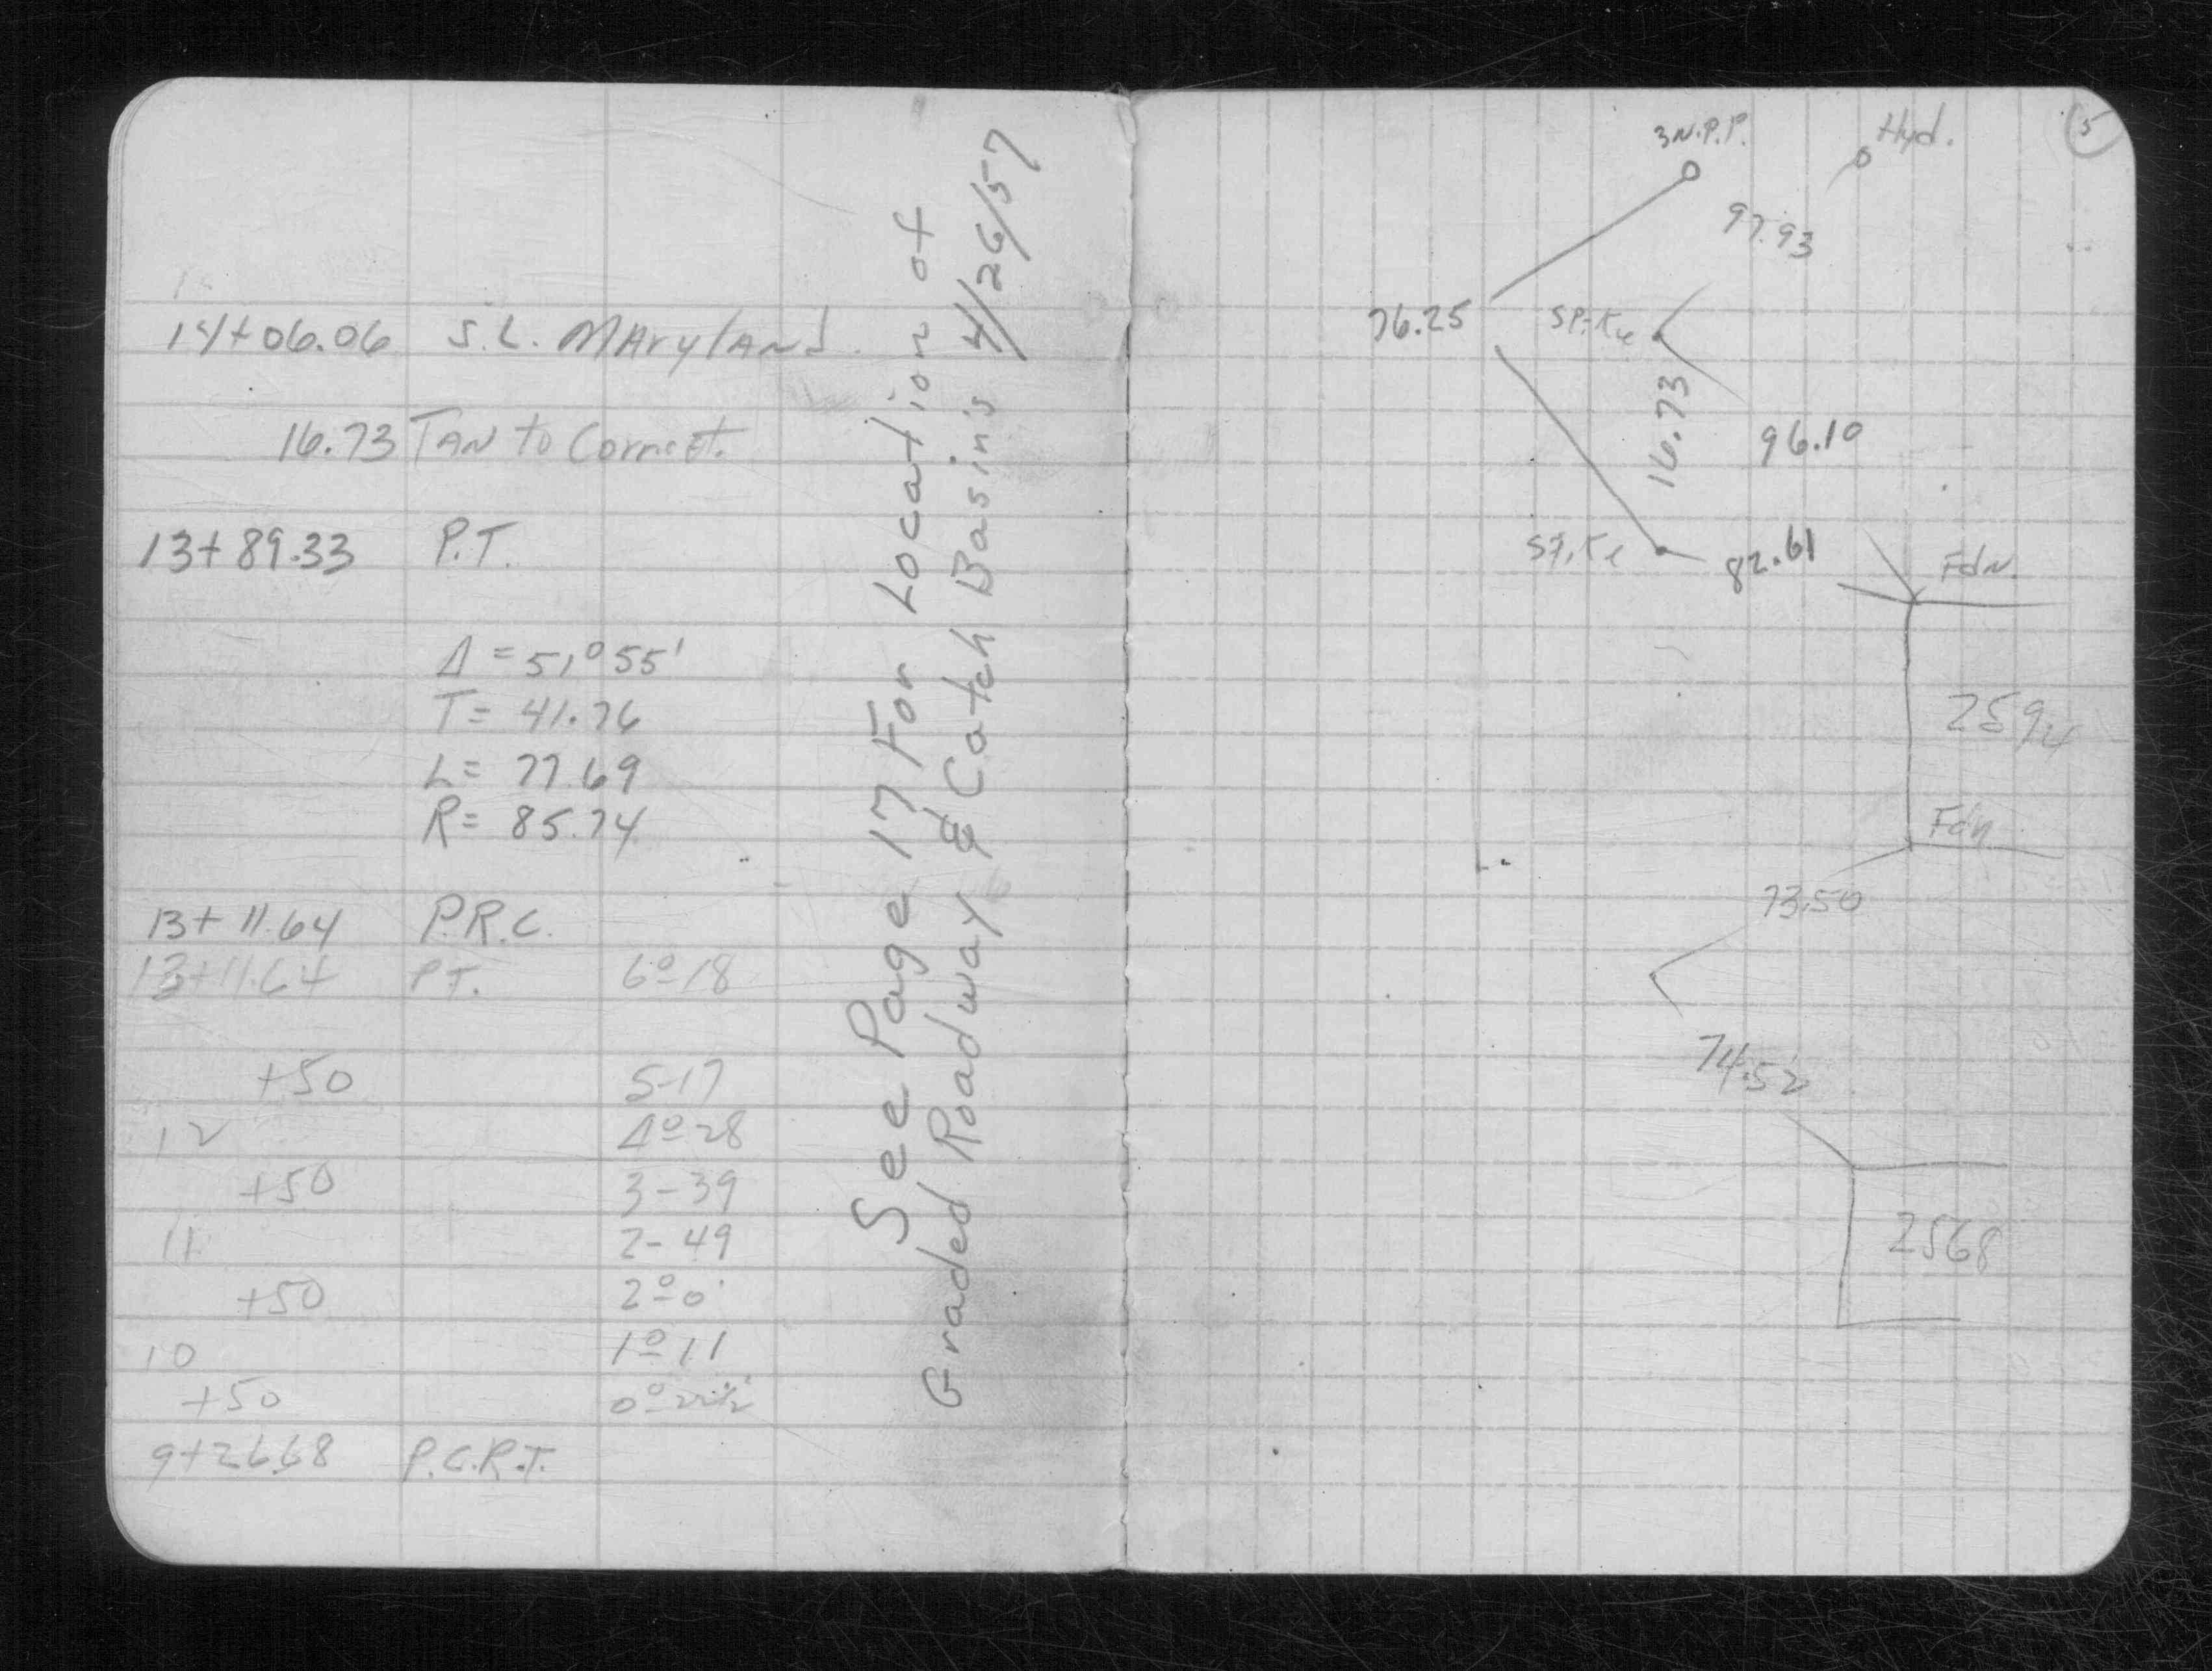 14+06.06 S.L. MAryland.
16.73 TAN to Correct.
13+89.33 P.T.
Δ = 51°55'
T = 41.76
L = 77.69
R = 85.74
13+11.64 P.R.C.
13+11.64 P.T. 6°18
+50 5-17
12 4°28
+50 3-39
11 2-49
+50 2°0'
10 1°11
+50
9+26.68 P.C.R.T.
See Page 17 For Location of
Graded Roadway & Catch Basin's 4/26/57
5
3N.P.P. Hyd.
97.93
76.25 SPiKe
16.73
96.10
SPiKe 82.61
Fdn.
2594
Fdn
73.50
74.52
2568